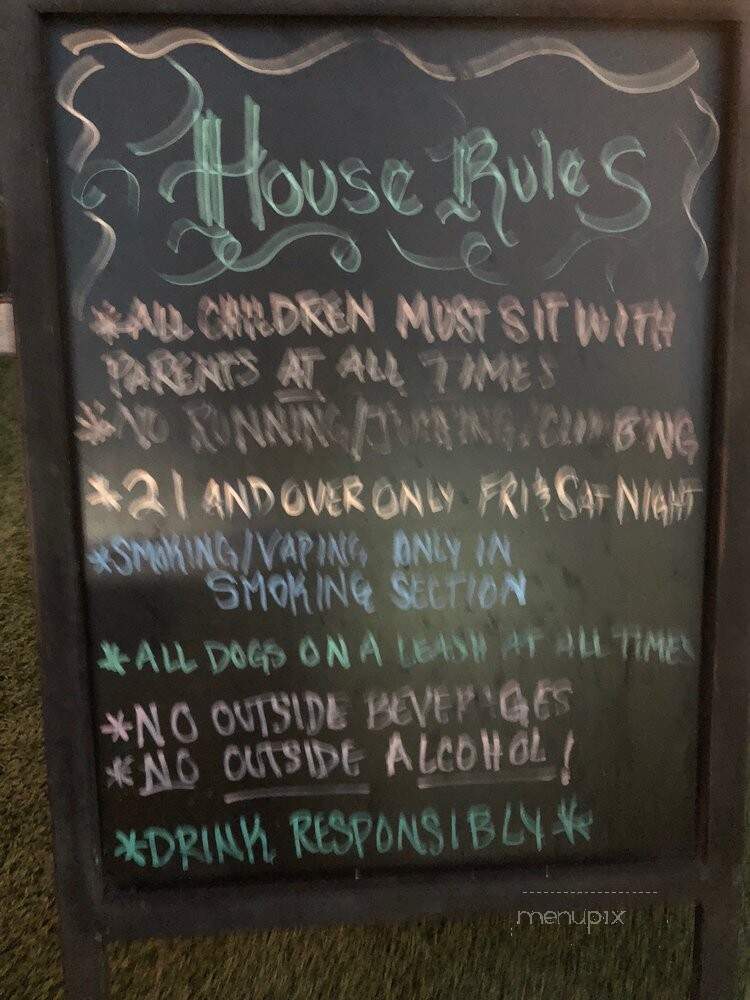 House Rules
*ALL CHILDREN MUST SIT WITH
PARENTS AT ALL TIMES
*NO RUNNING/JUMPING/CLIMBING
*21 AND OVER ONLY FRI & SAT NIGHT
*SMOKING/VAPING ONLY IN
SMOKING SECTION
*ALL DOGS ON A LEASH AT ALL TIMES
*NO OUTSIDE BEVERAGES
*NO OUTSIDE ALCOHOL!
*DRINK RESPONSIBLY*
menupix